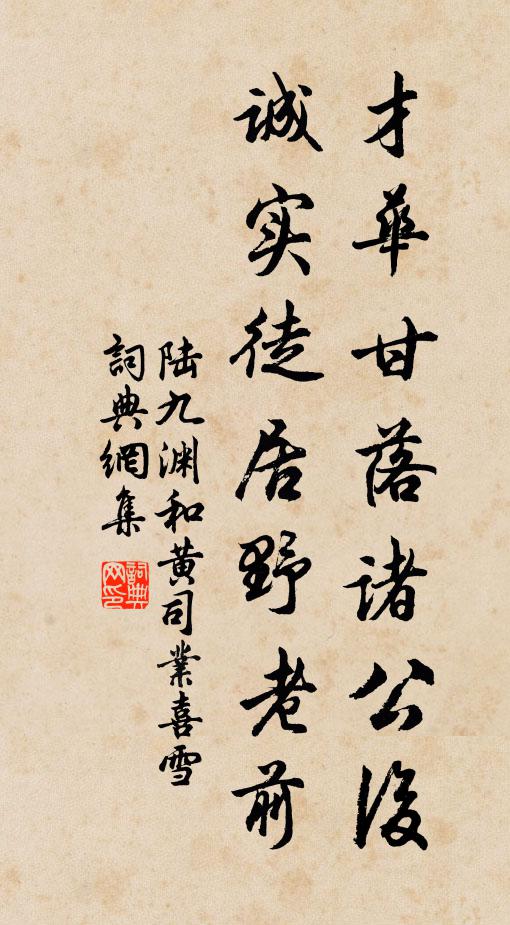 才華甘落諸公後
誠实徒居野老前
陆九渊和黄司業喜雪
詞典網集
詞典网印